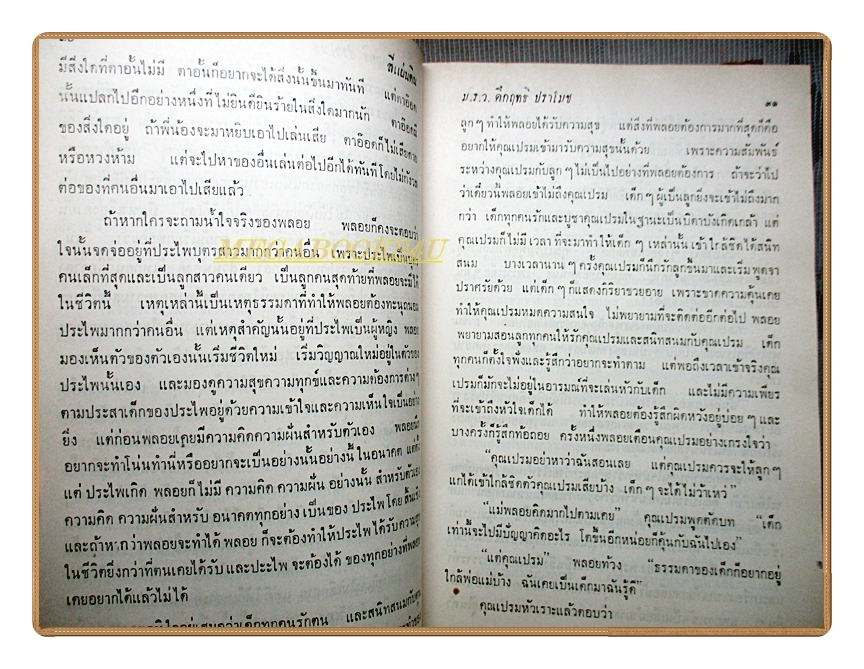 สี่แผ่นดิน
มีสิ่งใดที่ตาอั้นไม่มี ตาอั้นก็อยากจะได้สิ่งนั้นขึ้นมาทันที แต่ตาอ๊อด
นั้นแปลกไปอีกอย่างหนึ่งที่ไม่ยินดียินร้ายในสิ่งใดมากนัก ตาอ๊อดมี
ของสิ่งใดอยู่ ถ้าพี่น้องจะมาหยิบเอาไปเล่นเสีย ตาอ๊อดก็ไม่เสียดาย
หรือหวงห้าม แต่จะไปหาของอื่นเล่นต่อไปอีกได้ทันทีโดยไม่กังวล
ต่อของที่คนอื่นมาเอาไปเสียแล้ว
ถ้าหากใครจะถามน้ำใจจริงของพลอย พลอยก็คงจะตอบว่า
ใจนั้นจดจ่ออยู่ที่ประไพบุตรสาวมากกว่าคนอื่น เพราะประไพเป็น
คนเล็กที่สุดและเป็นลูกสาวคนเดียว เป็นลูกคนสุดท้ายที่พลอยจะมีได้
ในชีวิตนี้ เหตุเหล่านี้เป็นเหตุธรรมดาที่ทำให้พลอยต้องทะนุถนอม
ประไพมากกว่าคนอื่น แต่เหตุสำคัญนั้นอยู่ที่ประไพเป็นผู้หญิง พลอย
มองเห็นตัวของตัวเองนั้นเริ่มชีวิตใหม่ เริ่มวิญญาณใหม่อยู่ในตัวของ
ประไพนั้นเอง และมองดูความสุขความทุกข์และความต้องการต่างๆ
ตามประสาเด็กของประไพอยู่ด้วยความเข้าใจและความเห็นใจเป็นอย่าง
ยิ่ง แต่ก่อนพลอยเคยมีความคิดความฝันสำหรับตัวเอง พลอยนึก
อยากจะทำโน่นทำนี่หรืออยากจะเป็นอย่างนั้นอย่างนี้ ในอนาคต แต่ตั้ง
แต่ ประไพเกิด พลอยก็ไม่มี ความคิด ความฝัน อย่างนั้น สำหรับตัวเอง
ความคิด ความฝันสำหรับ อนาคตทุกอย่าง เป็นของ ประไพ โดย สิ้นเชิง
และถ้าหากว่าพลอยจะทำได้ พลอย ก็จะต้องทำให้ ประไพ ได้รับ ความสุข
ในชีวิตยิ่งกว่าที่ตนเคยได้รับ และประไพ จะต้องได้ ของทุกอย่างที่พลอย
เคยอยากได้แล้วไม่ได้
อยู่เสมอว่าเด็กทุกคนรักตน และสนิทสนมกับตน
MEGABOOKS4U
ม.ร.ว. คึกฤทธิ์ ปราโมช ๓๑
ลูกๆ ทำให้พลอยได้รับความสุข แต่สิ่งที่พลอยต้องการมากที่สุดก็คือ
อยากให้คุณเปรมเข้ามารับความสุขนั้นด้วย เพราะความสัมพันธ์
ระหว่างคุณเปรมกับลูกๆ ไม่เป็นไปอย่างที่พลอยต้องการ ถ้าจะว่าไป
ว่าเดี๋ยวนี้พลอยเข้าไม่ถึงคุณเปรม เด็กๆ ผู้เป็นลูกยิ่งจะเข้าไม่ถึงมาก
กว่า เด็กทุกคนรักและบูชาคุณเปรมในฐานะเป็นบิดาบังเกิดเกล้า แต่
คุณเปรมก็ไม่มี เวลา ที่จะมาทำ ให้เด็ก ๆ เหล่านั้น เข้าใกล้ชิดได้สนิท
สนม บางเวลานานๆ ครั้งคุณเปรมก็นึกรักลูกขึ้นมาและเริ่มพูดจา
ปราศรัยด้วย แต่เด็กๆ ก็แสดงกิริยาขวยอาย เพราะขาดความคุ้นเคย
ทำให้คุณเปรมหมดความสนใจ ไม่พยายามที่จะติดต่ออีกต่อไป พลอย
พยายามสอนลูกทุกคนให้รักคุณเปรมและสนิทสนมกับคุณเปรม เด็ก
ทุกคนก็ตั้งใจฟังและรู้สึกว่าอยากจะทำตาม แต่พอถึงเวลาเข้าจริงคุณ
เปรมก็มักจะไม่อยู่ในอารมณ์ที่จะเล่นหัวกับเด็ก และไม่มีความเพียร
ที่จะเข้าถึงหัวใจเด็กได้ ทำให้พลอยต้องรู้สึกผิดหวังอยู่บ่อยๆ และ
บางครั้งก็รู้สึกท้อถอย ครั้งหนึ่งพลอยเตือนคุณเปรมอย่างเกรงใจว่า
“คุณเปรมอย่าหาว่าฉันสอนเลย แต่คุณเปรมควรจะให้ลูกๆ
แกได้เข้าใกล้ชิดตัวคุณเปรมเสียบ้าง เด็กๆ จะได้ไม่ว้าเหว่”
“แม่พลอยคิดมากไปตามเคย” คุณเปรมพูดตัดบท “เด็ก
เท่านี้จะไปมีปัญญาคิดอะไร โตขึ้นอีกหน่อยก็คุ้นกับฉันไปเอง”
“แต่คุณเปรม” พลอยท้วง “ธรรมดาของเด็กก็อยากอยู่
ใกล้พ่อแม่บ้าง ฉันเคยเป็นเด็กมาฉันรู้ดี”
คุณเปรมหัวเราะแล้วตอบว่า